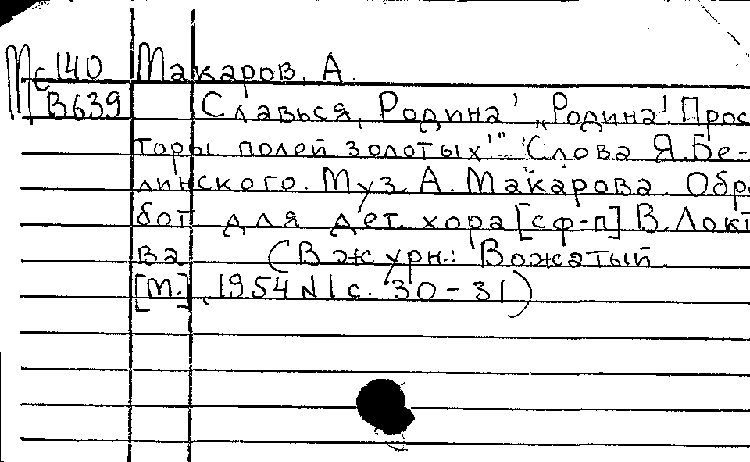 Мс 140 Макаров, А.
В639 Славься, Родина! „Родина! Прос
торы полей золотых!" Слова Я. Бе-
линского. Муз. А. Макарова. Обр
бот для дет. хора [сф-п] В. Локт
ва (В журн.: Вожатый
[М.], 1954 N1 с. 30-31)